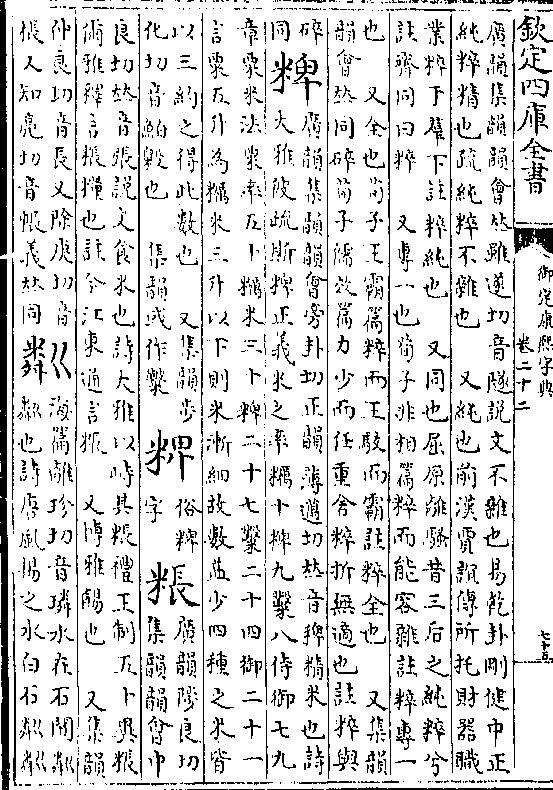 欽定四庫全書
御定康熙字典
卷二十二
七十五
廣韻集韻韻會𠀤雖遂切音𨽵說文不雜也易乾卦剛健中正
純粹精也疏純粹不雜也 又純也前漢賈誼傳所托財器職
業粹于羣下註粹純也 又同也屈原離騷昔三后之純粹兮
註齊同曰粹 又專一也荀子非相篇粹而能容雜註粹專一
也 又全也荀子王霸篇粹而王駁而霸註粹全也 又集韻
韻會𠀤同碎荀子儒效篇力少而任重舍粹折無適也註粹與
碎同 粺 廣韻集韻韻會旁卦切正韻薄邁切𠀤音稗精米也詩
大雅彼疏斯粺正義米之率糲十粺九鑿八侍御七九
章粟米法粟率五十糲米三十粺二十七鑿二十四御二十一
言粟五升為糲米三升以下則米漸細故數益少四種之米皆
以三約之得此數也 又集韻步化切音䰾縠也 集韻或作䊪
粺 俗粺字 粻 廣韻陟良切集韻韻會中
良切𠀤音張說文食米也詩大雅以峙其粻禮王制五十異粻
爾雅釋言粻糧也註今江東通言粻 又博雅餳也 又集韻
仲良切音長又除庚切音 巜 海篇離珍切音璘水在石間粼
悵人知亮切音帳義𠀤同 粼 粼也詩唐風揚之水白石粼粼